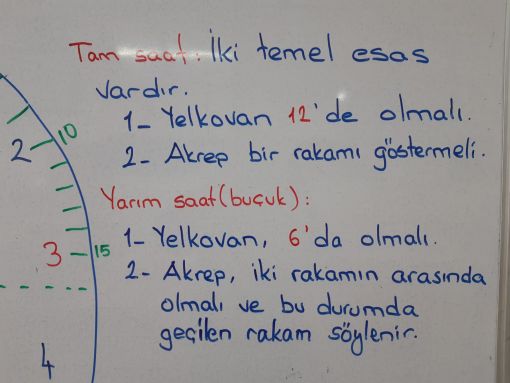 Tam saat: İki temel esas
vardır.
1- Yelkovan 12'de olmalı.
2- Akrep bir rakamı göstermeli.
Yarım saat (buçuk):
1- Yelkovan, 6'da olmalı.
2- Akrep, iki rakamın arasında
olmalı ve bu durumda
geçilen rakam söylenir.
2
10
3
15
4